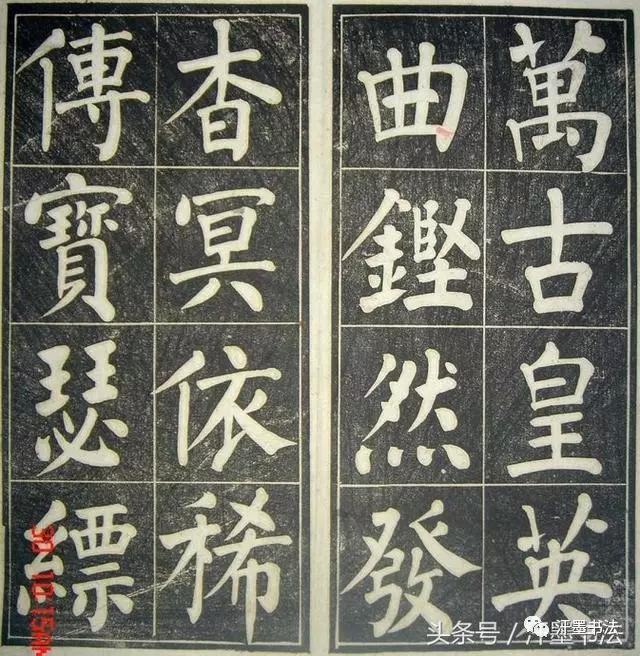 萬古皇英
曲鏗然發
杳冥依稀
傳寶瑟縹
头条号
汗墨书法